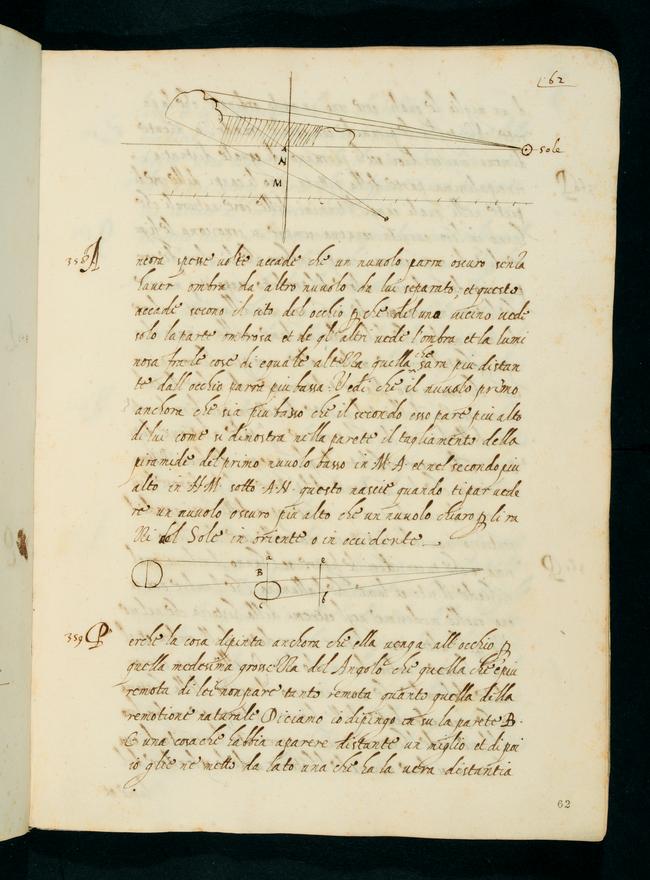 62
sole
A
N
M
358 A
ncora spesse volte accade che un nuvolo parra oscuro senza
haver ombra da altro nuvolo da lui separato, et questo
accade secono il sito del occhio p che del uno vicino vede
solo la parte ombrosa et de gl'altri vede l'ombra et la lumi
nosa fra le cose di equale altezza quella che sara piu distan
te dall'occhio parrè piu bassa. Vedi che il nuvolo primo
anchora che sia piu basso che il secondo esso pare piu alto
di lui come si dimostra nella parette il tagliamento della
piramide del primo nuvolo basso in M. A. et nel secondo piu
alto in H M. sotto A. N. questo nascie quando ti par vede
re un nuvolo oscuro piu alto che un nuvolo chiaro p li ra
zzi del Sole in oriente o in occidente.
a
e
B
c
b
359 P
erche la cosa dipinta anchora che ella venga all'occhio p
quella medesima grossezza del Angolo che quella che è piu
remota di lei non pare tanto remota quanto quella della
remotione naturale Diciamo io dipingo in su la parete B.
C una cosa che habbia a parere distante un miglio et di poi
io glie ne metto da lato una che ha la vera distantia
62